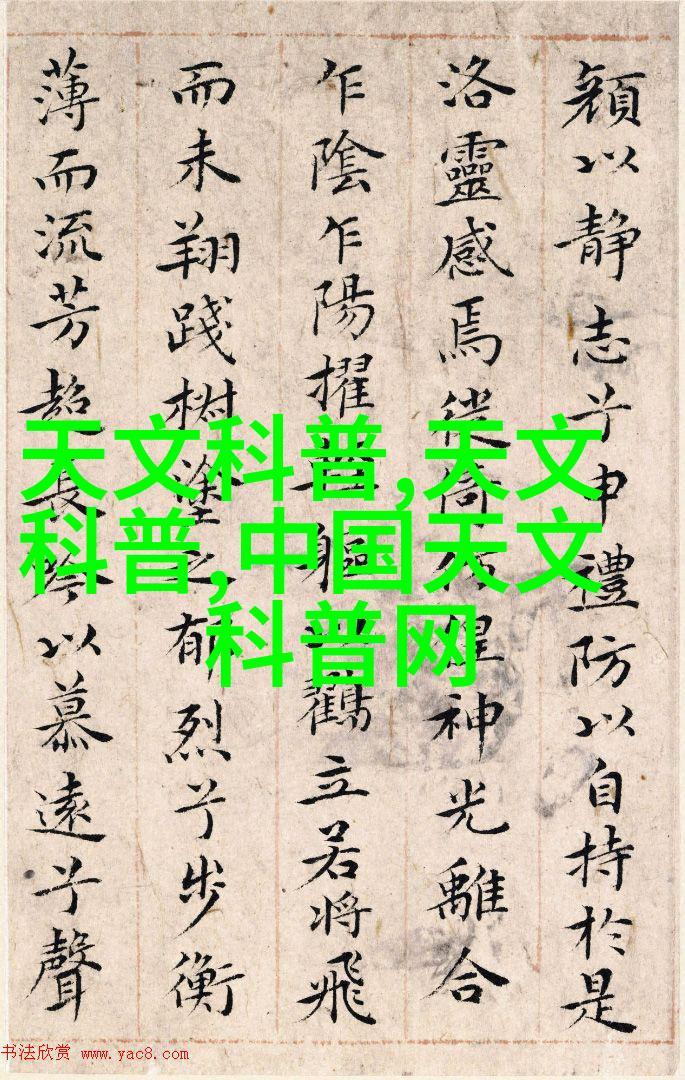 顏以静志兮申禮防以自持於是
洛靈感焉徙倚彷偟神光離合
乍陰乍陽擢軀以鶴立若將飛
而未翔踐椒塗之郁烈兮步衡
薄而流芳超長吟以慕遠兮聲
天文科普,天文
科普,中国天文
科普网
书法欣赏 www.yac8.com